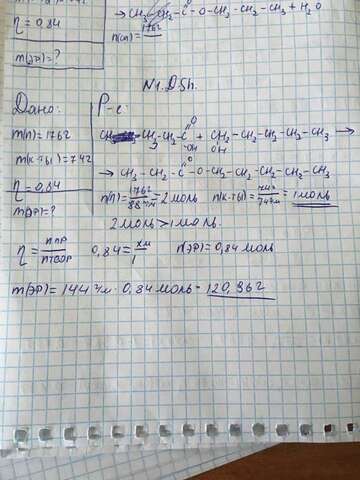 η = 0,84
m(эр) = ?
→ CH₃ CH₂ - C - O - CH₂ - CH₂ - CH₃ + H₂O
O
n(сп) = 176г
N1. DSh.
Дано:
Р-е:
m(п) = 176г
m(к-ты) = 74г
η = 0,84
m(эр) = ?
O
CH₃ - CH₂ - C + CH₂ - CH₂ - CH₂ - CH₂ - CH₃ →
OH OH
O
→ CH₃ - CH₂ - C - O - CH₂ - CH₂ - CH₂ - CH₂ - CH₃
n(п) = 176г / 88г/м = 2 моль n(к-ты) = 74г / 74г/м = 1 моль
2 моль > 1 моль.
η = nпр / nтеор 0,84 = xм / 1 n(эр) = 0,84 моль
m(эр) = 144 г/м · 0,84 моль = 120,96г